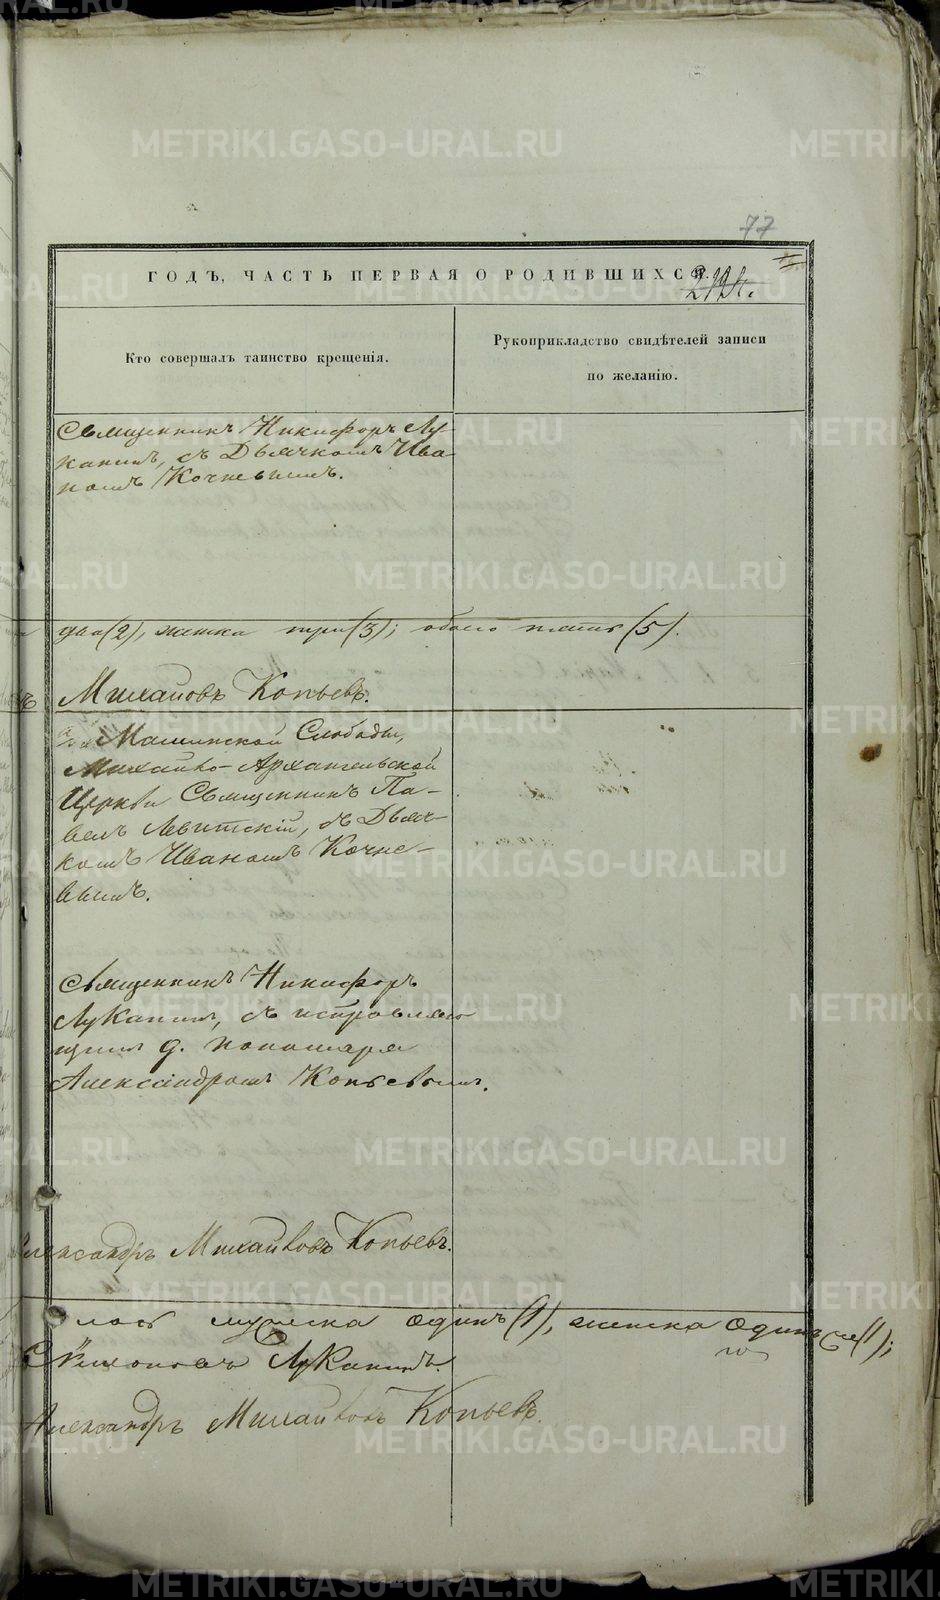 77
ГОДЪ, ЧАСТЬ ПЕРВАЯ О РОДИВШИХСЯ.
Кто совершалъ таинство крещенія.
Рукоприкладство свидѣтелей записи
по желанію.
Священникъ Никифоръ Лу-
канинъ, съ Дьячкомъ Ива
номъ Кочневымъ.
два (2), женска три (3); обоего пять (5).
Михаиловъ Копьевъ.
Машинской Слободы,
Михаило-Архангельской
Церкви Священникъ Па-
велъ Левитскій, съ Дьяч-
комъ Иваномъ Кочне-
вымъ.
Священникъ Никифоръ
Луканинъ, съ исправляю
щимъ д. пономаря
Александромъ Копьевымъ.
Александръ Михаиловъ Копьевъ.
лось мужска одинъ (1), женска одинъ (1);
Симоновъ Луканинъ.
Александръ Михаиловъ Копьевъ.
METRIKI.GASO-URAL.RU